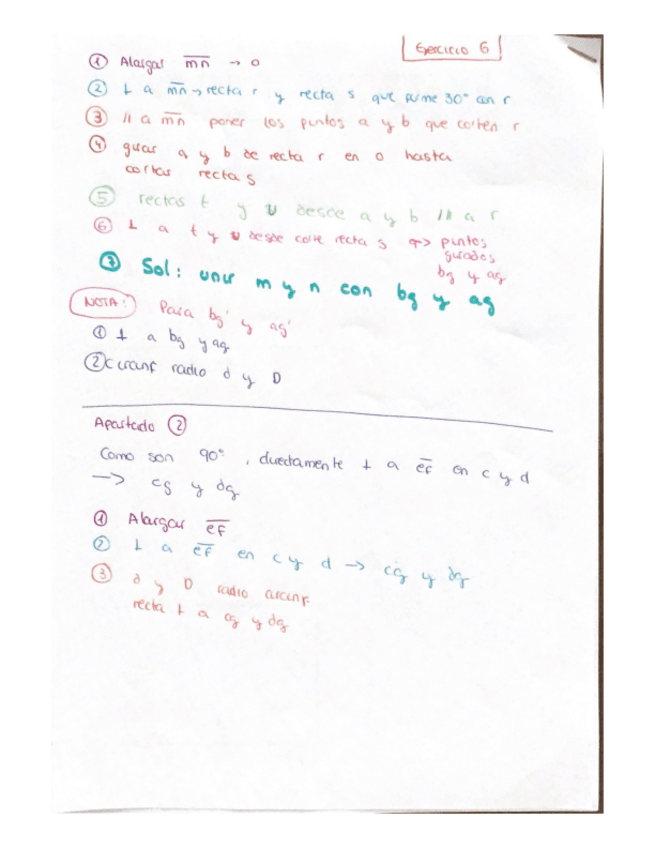 Ejercicio 6
① Alargar m̅n̅ → o
② ⊥ a m̅n̅ → recta r y recta s que forme 30° con r
③ // a m̅n̅ poner los puntos a y b que corten r
④ girar a y b de recta r en o hasta
cortar recta s
⑤ rectas t y v desde a y b // a r
⑥ ⊥ a t y v desde corte recta s → puntos
girados
bg y ag
⑦ Sol: unir m y n con bg y ag
NOTA: Para bg' y ag'
① ⊥ a bg y ag
② circunf radio d y D
Apartado ②
Como son 90°, directamente ⊥ a e̅f̅ en c y d
→ cg y dg
① Alargar e̅f̅
② ⊥ a e̅f̅ en c y d → cg y dg
③ d y D radio circunf
recta ⊥ a cg y dg